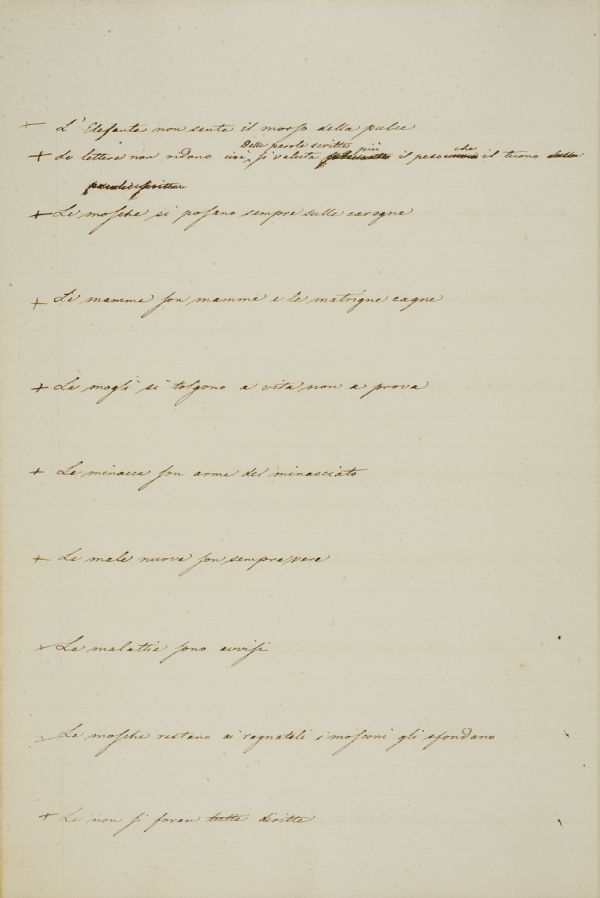 + L'Elefante non sente il morso della pulce
delle parole scritte più che
+ Le lettere non ridono cioè, si valuta il peso il tuono delle
parole scritte
+ Le mosche si posano sempre sulle carogne
+ Le mamme son mamme e le matrigne cagne
+ Le mogli si tolgono a vita non a prova
+ Le minacce son arme del minacciato
+ Le male nuove son sempre vere
+ Le malattie sono avvisi
Le mosche restano ai ragnateli i mosconi gli sfondano
+ Le non si foran tutte diritte